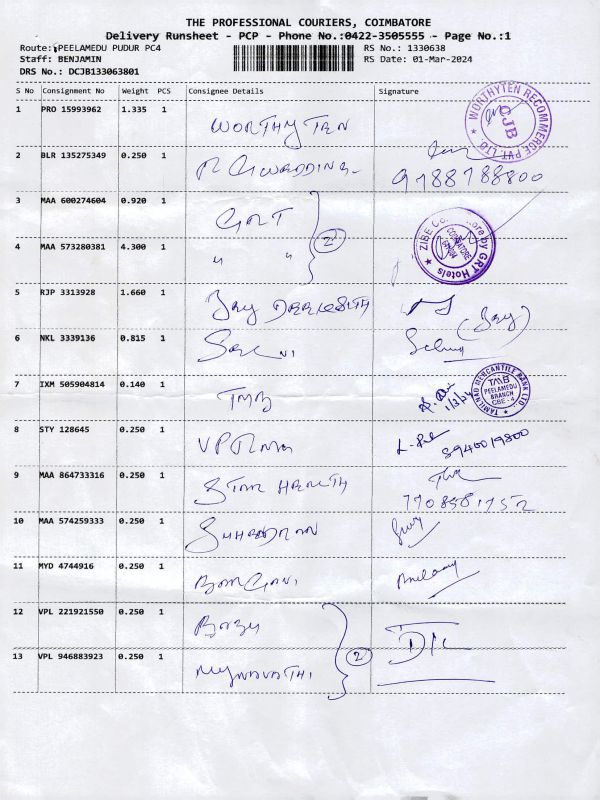 THE PROFESSIONAL COURIERS, COIMBATORE
Delivery Runsheet - PCP - Phone No.:0422-3505555 - Page No.:1
Route: PEELAMEDU PUDUR PC4 RS No.: 1330638
Staff: BENJAMIN RS Date: 01-Mar-2024
DRS No.: DCJB133063801
S No Consignment No Weight PCS Consignee Details Signature
1 PRO 15993962 1.335 1 WORTHYTEN WORTHYTEN RECOMMERCE PVT. LTD. CJB
2 BLR 135275349 0.250 1 9788788800
3 MAA 600274604 0.920 1 GRT
2
4 MAA 573280381 4.300 1 " " by GRT Hotels COIMBATORE
5 RJP 3313928 1.660 1 (Jay)
6 NKL 3339136 0.815 1
7 IXM 505904814 0.140 1 TMB 1/3/24 TAMILNAD MERCANTILE BANK LTD TMB PEELAMEDU BRANCH CBE - 4
8 STY 128645 0.250 1
9 MAA 864733316 0.250 1 STAR HEALTH
10 MAA 574259333 0.250 1
11 MYD 4744916 0.250 1
12 VPL 221921550 0.250 1
2
13 VPL 946883923 0.250 1